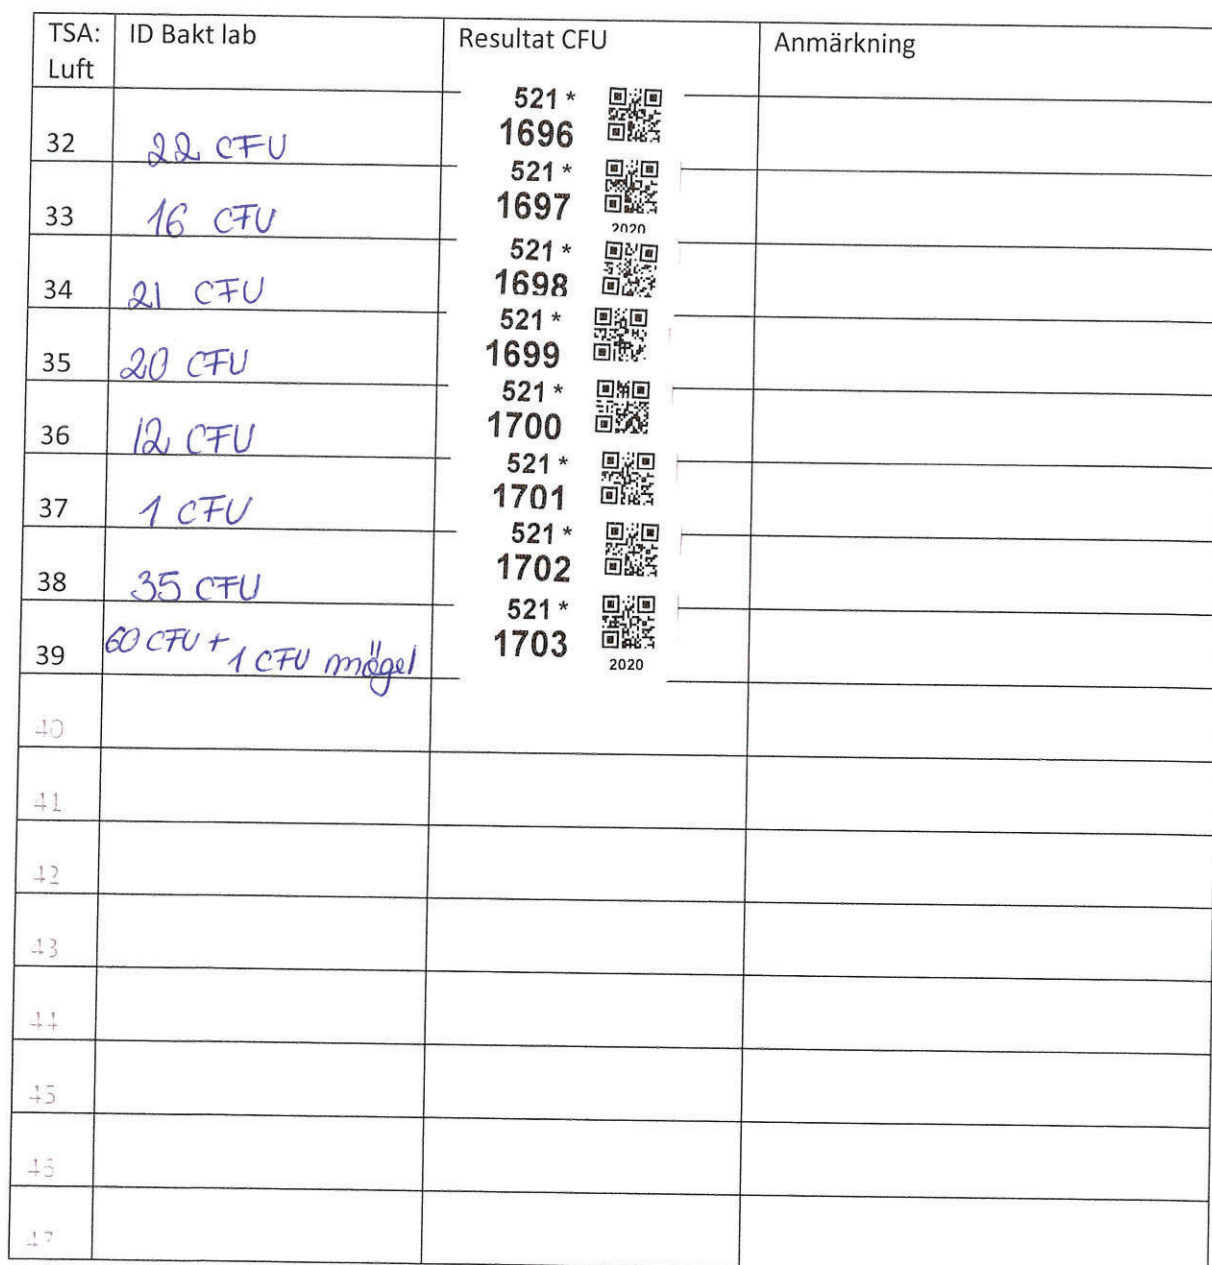 TSA: Luft ID Bakt lab Resultat CFU Anmärkning
32 22 CFU 521 * 1696
33 16 CFU 521 * 1697 2020
34 21 CFU 521 * 1698
35 20 CFU 521 * 1699
36 12 CFU 521 * 1700
37 1 CFU 521 * 1701
38 35 CFU 521 * 1702
39 60 CFU + 1 CFU mögel 521 * 1703 2020
40
41
42
43
44
45
46
47